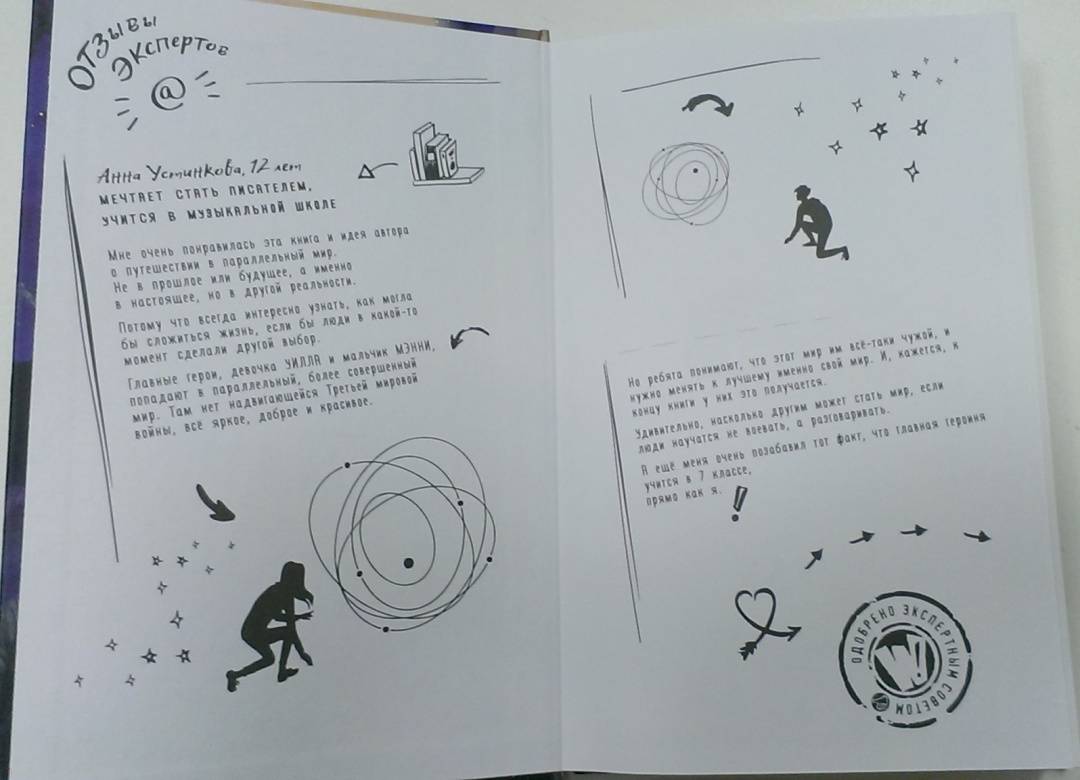 Отзывы
экспертов
@
Анна Устинкова, 12 лет
мечтает стать писателем,
учится в музыкальной школе
Мне очень понравилась эта книга и идея автора
о путешествии в параллельный мир.
Не в прошлое или будущее, а именно
в настоящее, но в другой реальности.
Потому что всегда интересно узнать, как могла
бы сложиться жизнь, если бы люди в какой-то
момент сделали другой выбор.
Главные герои, девочка УИЛЛА и мальчик МЭННИ,
попадают в параллельный, более совершенный
мир. Там нет надвигающейся Третьей мировой
войны, всё яркое, доброе и красивое.
Но ребята понимают, что этот мир им всё-таки чужой, и
нужно менять к лучшему именно свой мир. И, кажется, к
концу книги у них это получается.
Удивительно, насколько другим может стать мир, если
люди научатся не воевать, а разговаривать.
А ещё меня очень позабавил тот факт, что главная героиня
учится в 7 классе,
прямо как я.
!
ОДОБРЕНО ЭКСПЕРТНЫМ СОВЕТОМ
W!